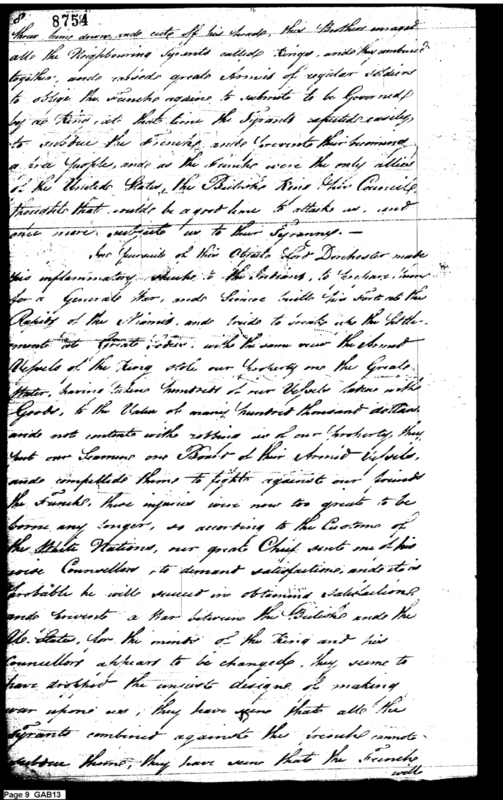 8 8754
threw him down, and cut off his head, this Brothers enraged
all the Neighbouring Tyrants called Kings, and they combined
together, and raised great Armies of regular Soldiers
to oblige the French againe to submit to be Governed
by a King at that time the Tyrants expected easily
to subdue the French, and prevent their becoming
a free people, and as the French were the only allies
of the United States, the British King & his Council
thought that would be a good time to attack us, and
once more subject us to their Tyranny. —
In pursuit of this Object Lord Dorchester made
his inflammatory speech to the Indians, to prepare them
for a General War, and Simcoe built his Fort at the
Rapids of the Miamis, and tried to break up the Settle-
ments at Great Sodus, with the same view the Armed
Vessels of the King stole our property on the Great
Water, having taken hundreds of our Vessels laden with
Goods, to the Value of many hundred thousand dollars
and not content with robbing us of our property, they
put our Seamen on Board of their Armed Vessels,
and compelled them to fight against our friends
the French, these injuries were now too great to be
borne any longer, so according to the Custom of
the White Nations, our great Chief sent one of his
wise Counsellors to demand satisfaction, and it is
probable he will succeed in obtaining Satisfaction
and prevent a War between the British and the
U. States, for the minds of the King and his
Councellors appears to be changed, they seem to
have dropped the unjust designs of making
war upon us, they have seen that all the
Tyrants combined against the French cannot
subdue them, they have seen that the French
will
Page 9 GAB13